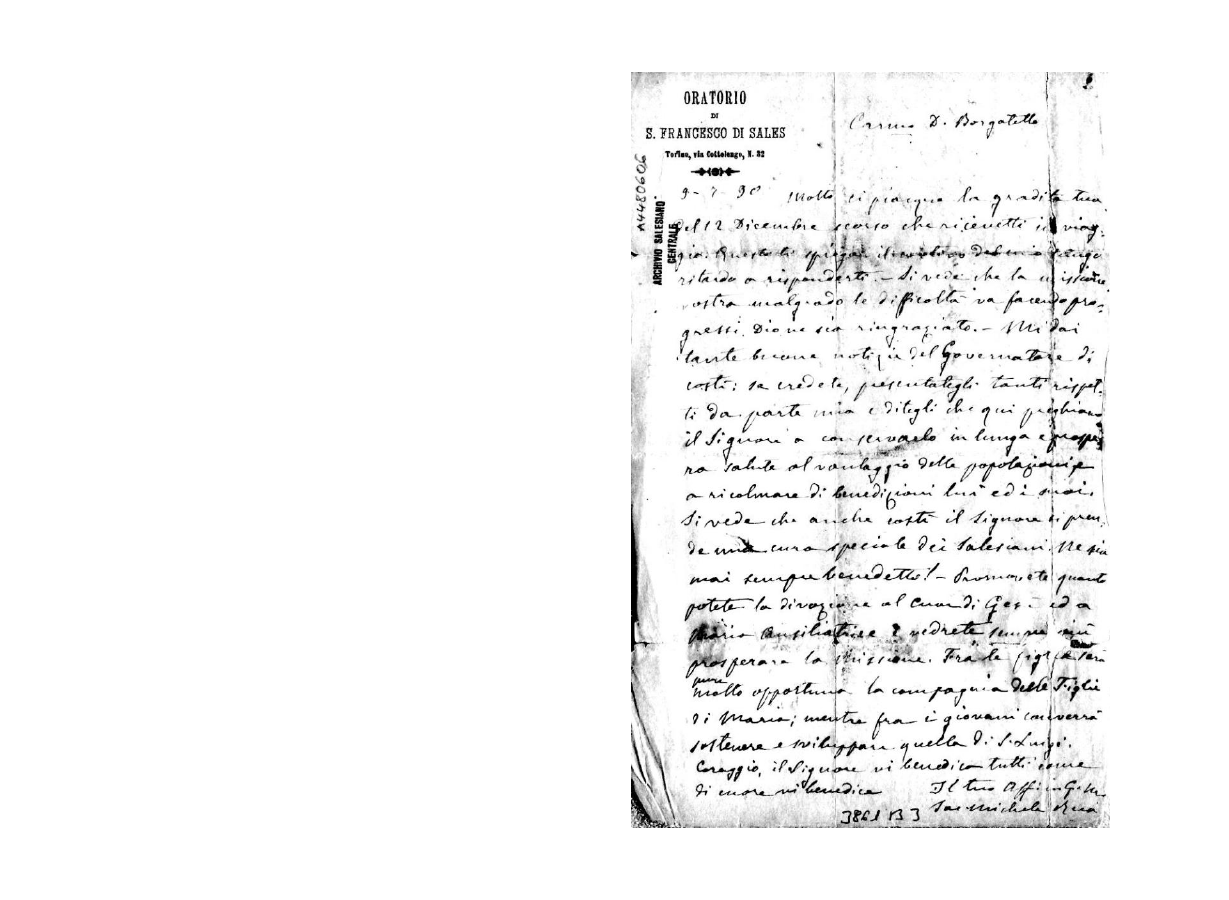 ORATORIO
DI
S. FRANCESCO DI SALES
Torino, via Cottolengo, N. 32
A4480606
ARCHIVIO SALESIANO
CENTRALE
Carmo D. Borgatello
9-7-98 Molto ci piacque la gradita tua
del 12 Dicembre scorso che ricevetti in viag-
gio. Questo ti spieghi il motivo del mio lungo
ritardo a risponderti. – Si vede che la missione
vostra malgrado le difficoltà va facendo pro-
gressi. Dio ne sia ringraziato. – Mi dai
tante buone notizie del Governatore di
costì: se credete, presentategli tanti rispet-
ti da parte mia e ditegli che qui preghiamo
il Signore a conservarlo in lunga e prospe-
ra salute al vantaggio delle popolazioni e
a ricolmare di benedizioni lui ed i suoi.
Si vede che anche costì il Signore si pren-
de una cura speciale dei Salesiani. Ne sia
mai sempre benedetto! – Promovete quanto
potete la divozione al Cuor di Gesù ed a
Maria Ausiliatrice e vedrete sempre più
prosperare la Missione. Fra le figlie sarà
pure
molto opportuna la compagnia delle Figlie
di Maria; mentre fra i giovani converrà
sostenere e sviluppare quella di S. Luigi.
Coraggio, il Signore vi benedica tutti come
di cuore vi benedice Il tuo Aff. in G. e M.
Sac. Michele Rua
3861 B 3